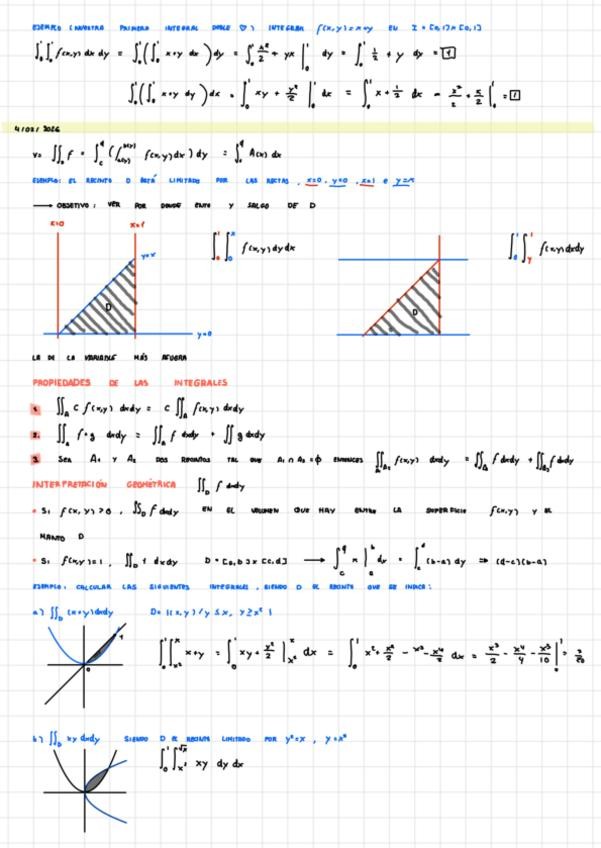 EJEMPLO (NUESTRA PRIMERA INTEGRAL DOBLE ♡) INTEGRAR f(x,y)=x+y EN I = [0,1]×[0,1]
∫₀¹∫₀¹ f(x,y) dx dy = ∫₀¹(∫₀¹ x+y dx) dy = ∫₀¹ x²/2 + yx |₀¹ dy = ∫₀¹ 1/2 + y dy = 1
∫₀¹(∫₀¹ x+y dy) dx = ∫₀¹ xy + y²/2 |₀¹ dx = ∫₀¹ x + 1/2 dx = x²/2 + x/2 |₀¹ = 1
V = ∬_D f = ∫ (∫ f(x,y) dx) dy = ∫ A(x) dx
EJEMPLO: EL RECINTO D ESTÁ LIMITADO POR LAS RECTAS, x=0, y=0, x=1 e y=x
⟶ OBJETIVO: VER POR DONDE ENTO Y SALGO DE D
x=0 x=1 ∫₀¹∫₀ˣ f(x,y) dy dx ∫₀¹∫_y¹ f(x,y) dx dy
y=x
D D
y=0
LA DE LA VARIABLE MÁS AFUERA
PROPIEDADES DE LAS INTEGRALES
1. ∬_A c f(x,y) dxdy = c ∬_A f(x,y) dxdy
2. ∬_A f+g dxdy = ∬_A f dxdy + ∬ g dxdy
3. SEA A₁ Y A₂ DOS RECINTOS TAL QUE A₁ ∩ A₂ = ∅ ENTONCES ∬ f(x,y) dxdy = ∬ f dxdy + ∬ f dxdy
INTERPRETACIÓN GEOMÉTRICA ∬_D f dxdy
• Si f(x,y) > 0, ∬_D f dxdy EN EL VOLUMEN QUE HAY ENTRE LA SUPERFICIE f(x,y) Y EL
MANTO D
• Si f(x,y) = 1, ∬_D 1 dxdy D = [a,b]×[c,d] ⟶ ∫_c^d x |_a^b dx = ∫_c^d (b-a) dy ⇒ (d-c)(b-a)
EJEMPLO: CALCULAR LAS SIGUIENTES INTEGRALES, SIENDO D EL RECINTO QUE SE INDICA:
a) ∬_D (x+y) dxdy D = {(x,y) / y ≤ x, y ≥ x² }
∫₀¹∫_{x²}^x x+y = ∫₀¹ xy + y²/2 |_{x²}^x dx = ∫₀¹ x² + x²/2 - x³ - x⁴/2 dx = x³/2 - x⁴/4 - x⁵/10 |₀¹ = 3/20
b) ∬_D xy dxdy SIENDO D EL RECINTO LIMITADO POR y²=x, y=x²
∫₀¹∫_{x²}^{√x} xy dy dx